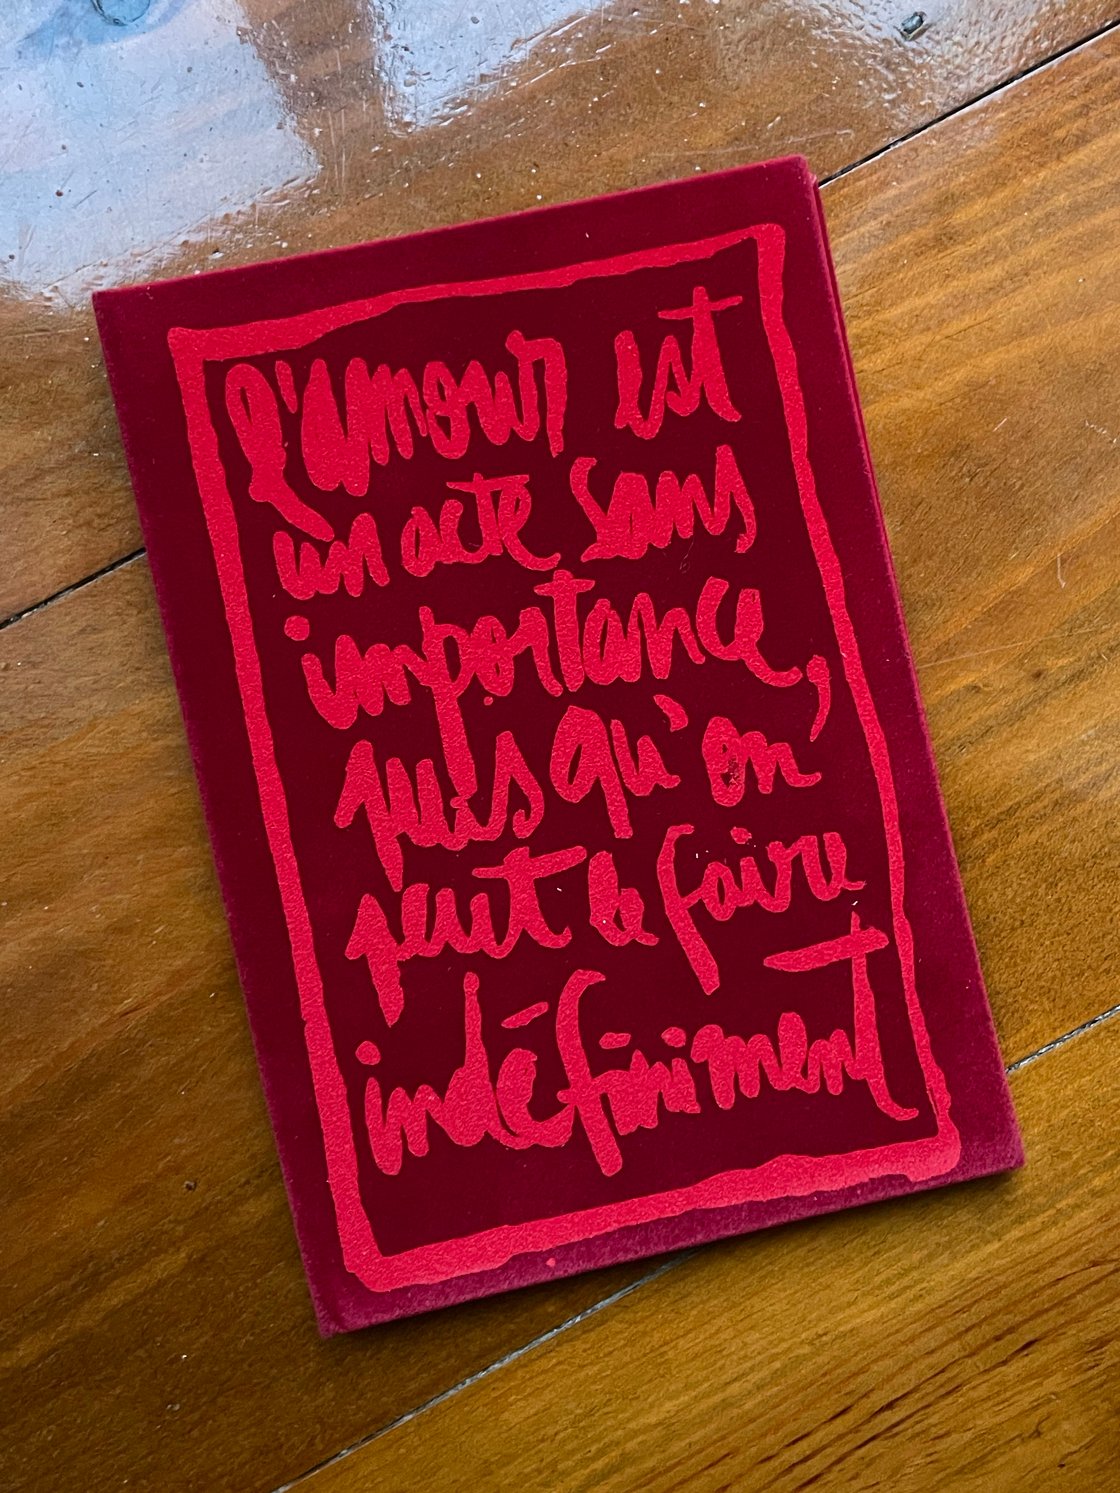 l'amour est
un acte sans
importance,
puisqu'on
peut le faire
indéfiniment